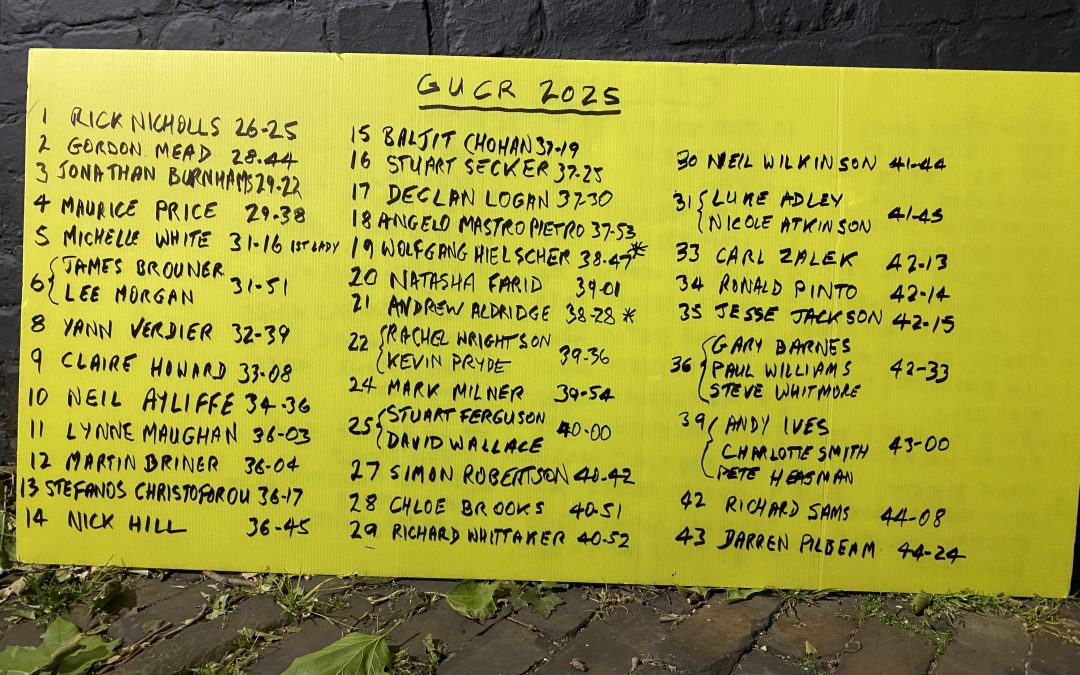 GUCR 2025
1 RICK NICHOLLS 26-25
2 GORDON MEAD 28-44
3 JONATHAN BURNHAMS 29-22
4 MAURICE PRICE 29-38
5 MICHELLE WHITE 31-16 1ST LADY
6 { JAMES BROUNER
LEE MORGAN 31-51
8 YANN VERDIER 32-39
9 CLAIRE HOWARD 33-08
10 NEIL AYLIFFE 34-36
11 LYNNE MAUGHAN 36-03
12 MARTIN BRINER 36-04
13 STEFANOS CHRISTOFOROU 36-17
14 NICK HILL 36-45
15 BALJIT CHOHAN 37-19
16 STUART SECKER 37-25
17 DECLAN LOGAN 37-30
18 ANGELO MASTROPIETRO 37-53
19 WOLFGANG HIELSCHER 38-47*
20 NATASHA FARID 39-01
21 ANDREW ALDRIDGE 38-28 *
22 { RACHEL WRIGHTSON
KEVIN PRYDE 39-36
24 MARK MILNER 39-54
25 { STUART FERGUSON
DAVID WALLACE 40-00
27 SIMON ROBERTSON 40-42
28 CHLOE BROOKS 40-51
29 RICHARD WHITTAKER 40-52
30 NEIL WILKINSON 41-44
31 { LUKE ADLEY
NICOLE ATKINSON 41-45
33 CARL ZALEK 42-13
34 RONALD PINTO 42-14
35 JESSE JACKSON 42-15
36 { GARY BARNES
PAUL WILLIAMS 42-33
STEVE WHITMORE
39 { ANDY IVES
CHARLOTTE SMITH 43-00
PETE HEASMAN
42 RICHARD SAMS 44-08
43 DARREN PILBEAM 44-24